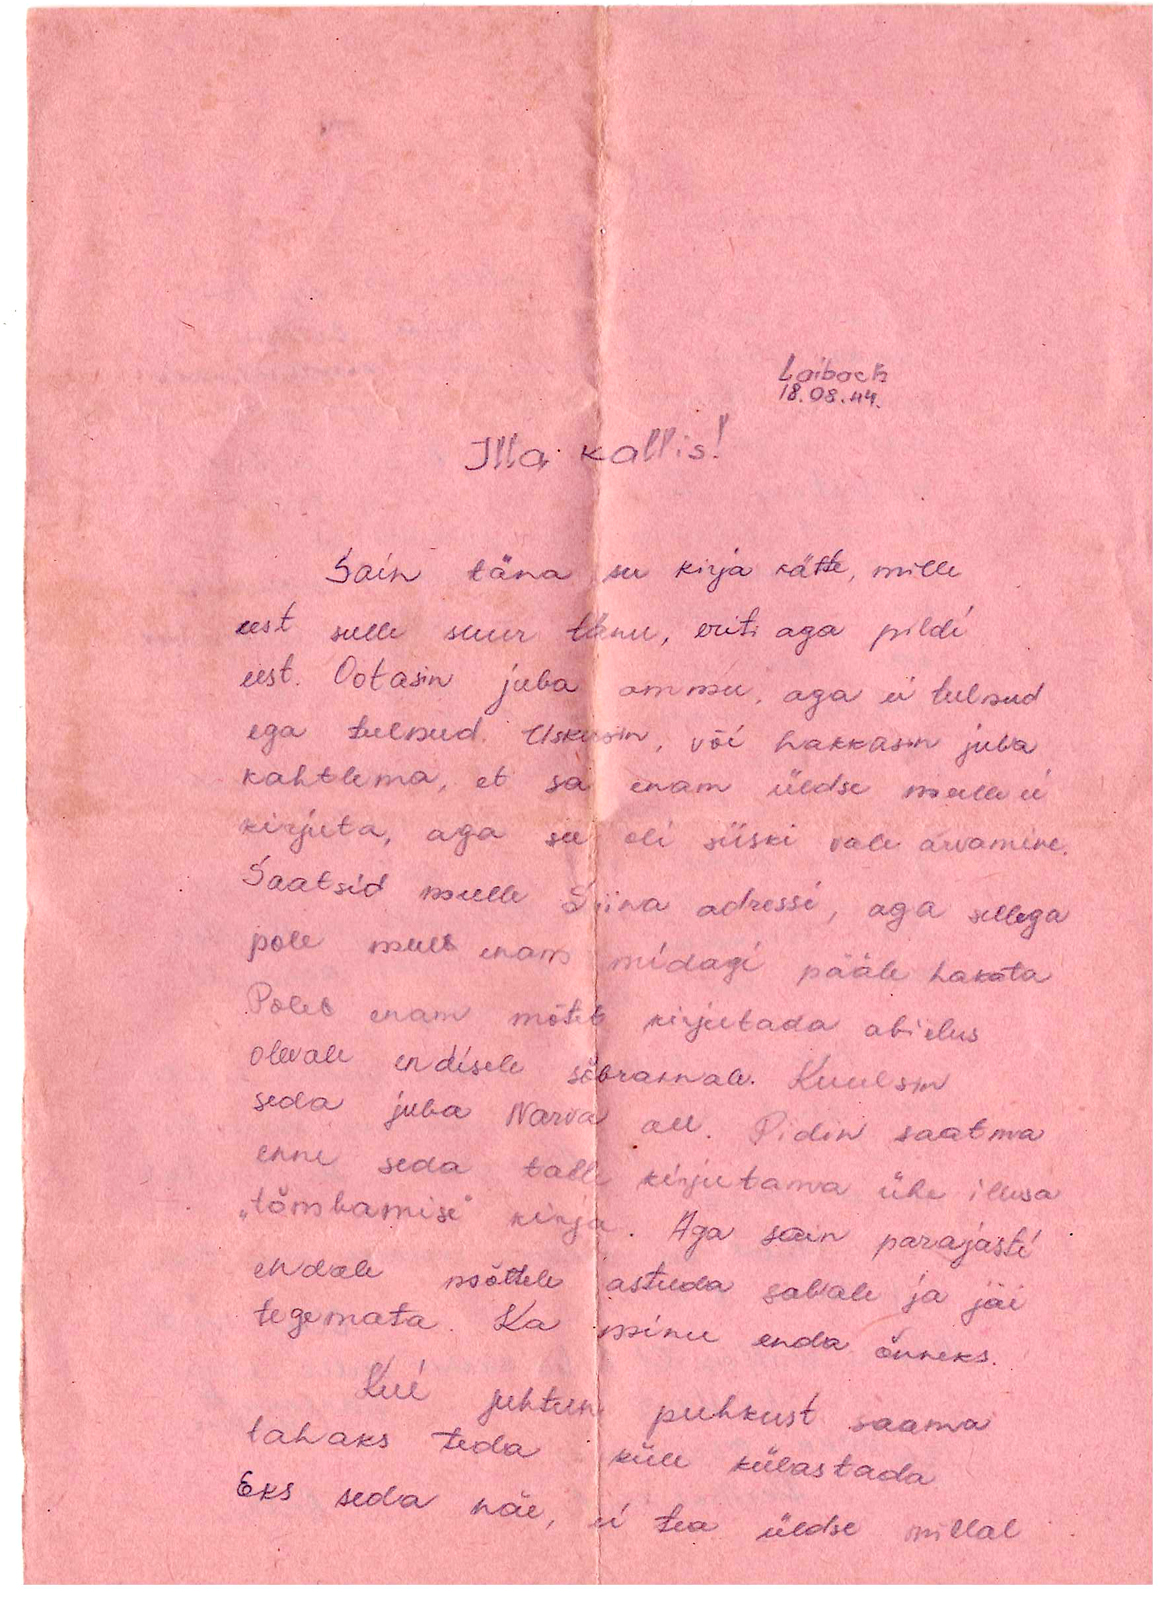 Laibach
18.08.44.
Illa kallis!
Sain täna su kirja kätte, mille
eest sulle suur tänu, eriti aga pildi
eest. Ootasin juba ammu, aga ei tulnud
ega tulnud. Uskusin, või hakkasin juba
kahtlema, et sa enam üldse mulle ei
kirjuta, aga see oli siiski vale arvamine.
Saatsid mulle Siina adressi, aga sellega
pole mul enam midagi pääle hakata
Polet enam mõtet kirjutada abielus
olevale endisele sõbrannale. Kuulsin
seda juba Narva all. Pidin saatma
enne seda talle kirjutama ühe illusa
„tõmbamise" kirja. Aga sain parajasti
endale mõttele astuda sabale ja jäi
tegemata. Ka minu enda õnneks.
Kui juhtun puhkust saama
tahaks teda küll külastada
Eks seda näe, ei tea üldse millal